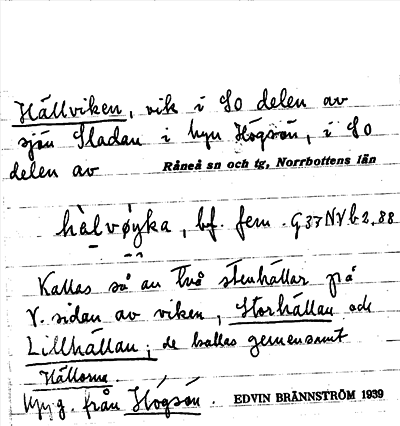 Hällviken, vik i SO delen av
sjön Sladan i byn Högsön, i SO
delen av Råneå sn och tg, Norrbottens län
hàlvøyka, bf. fem.
Kallas så av två stenhällar på
V. sidan av viken, Storhällan och
Lillhällan; de kallas gemensamt
Hällorna.
från Högsön. EDVIN BRÄNNSTRÖM 1939